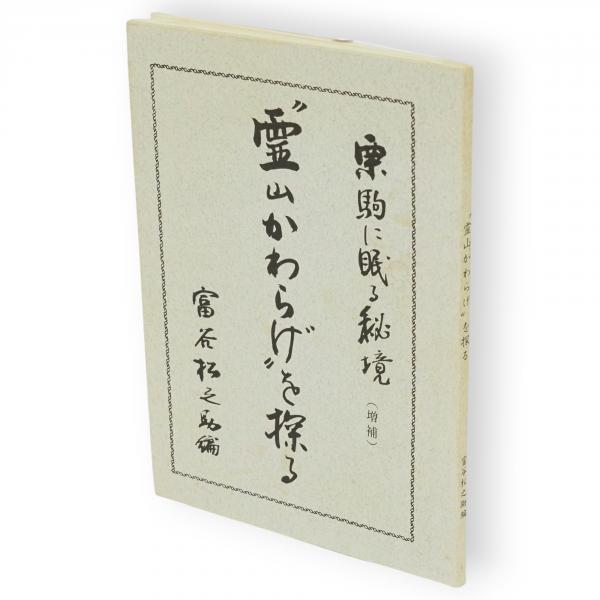 栗駒に眠る秘境
(増補)
〝霊山かわらげ〟を探る
富谷松之助編
〝霊山かわらげ〟を探る
富谷松之助編